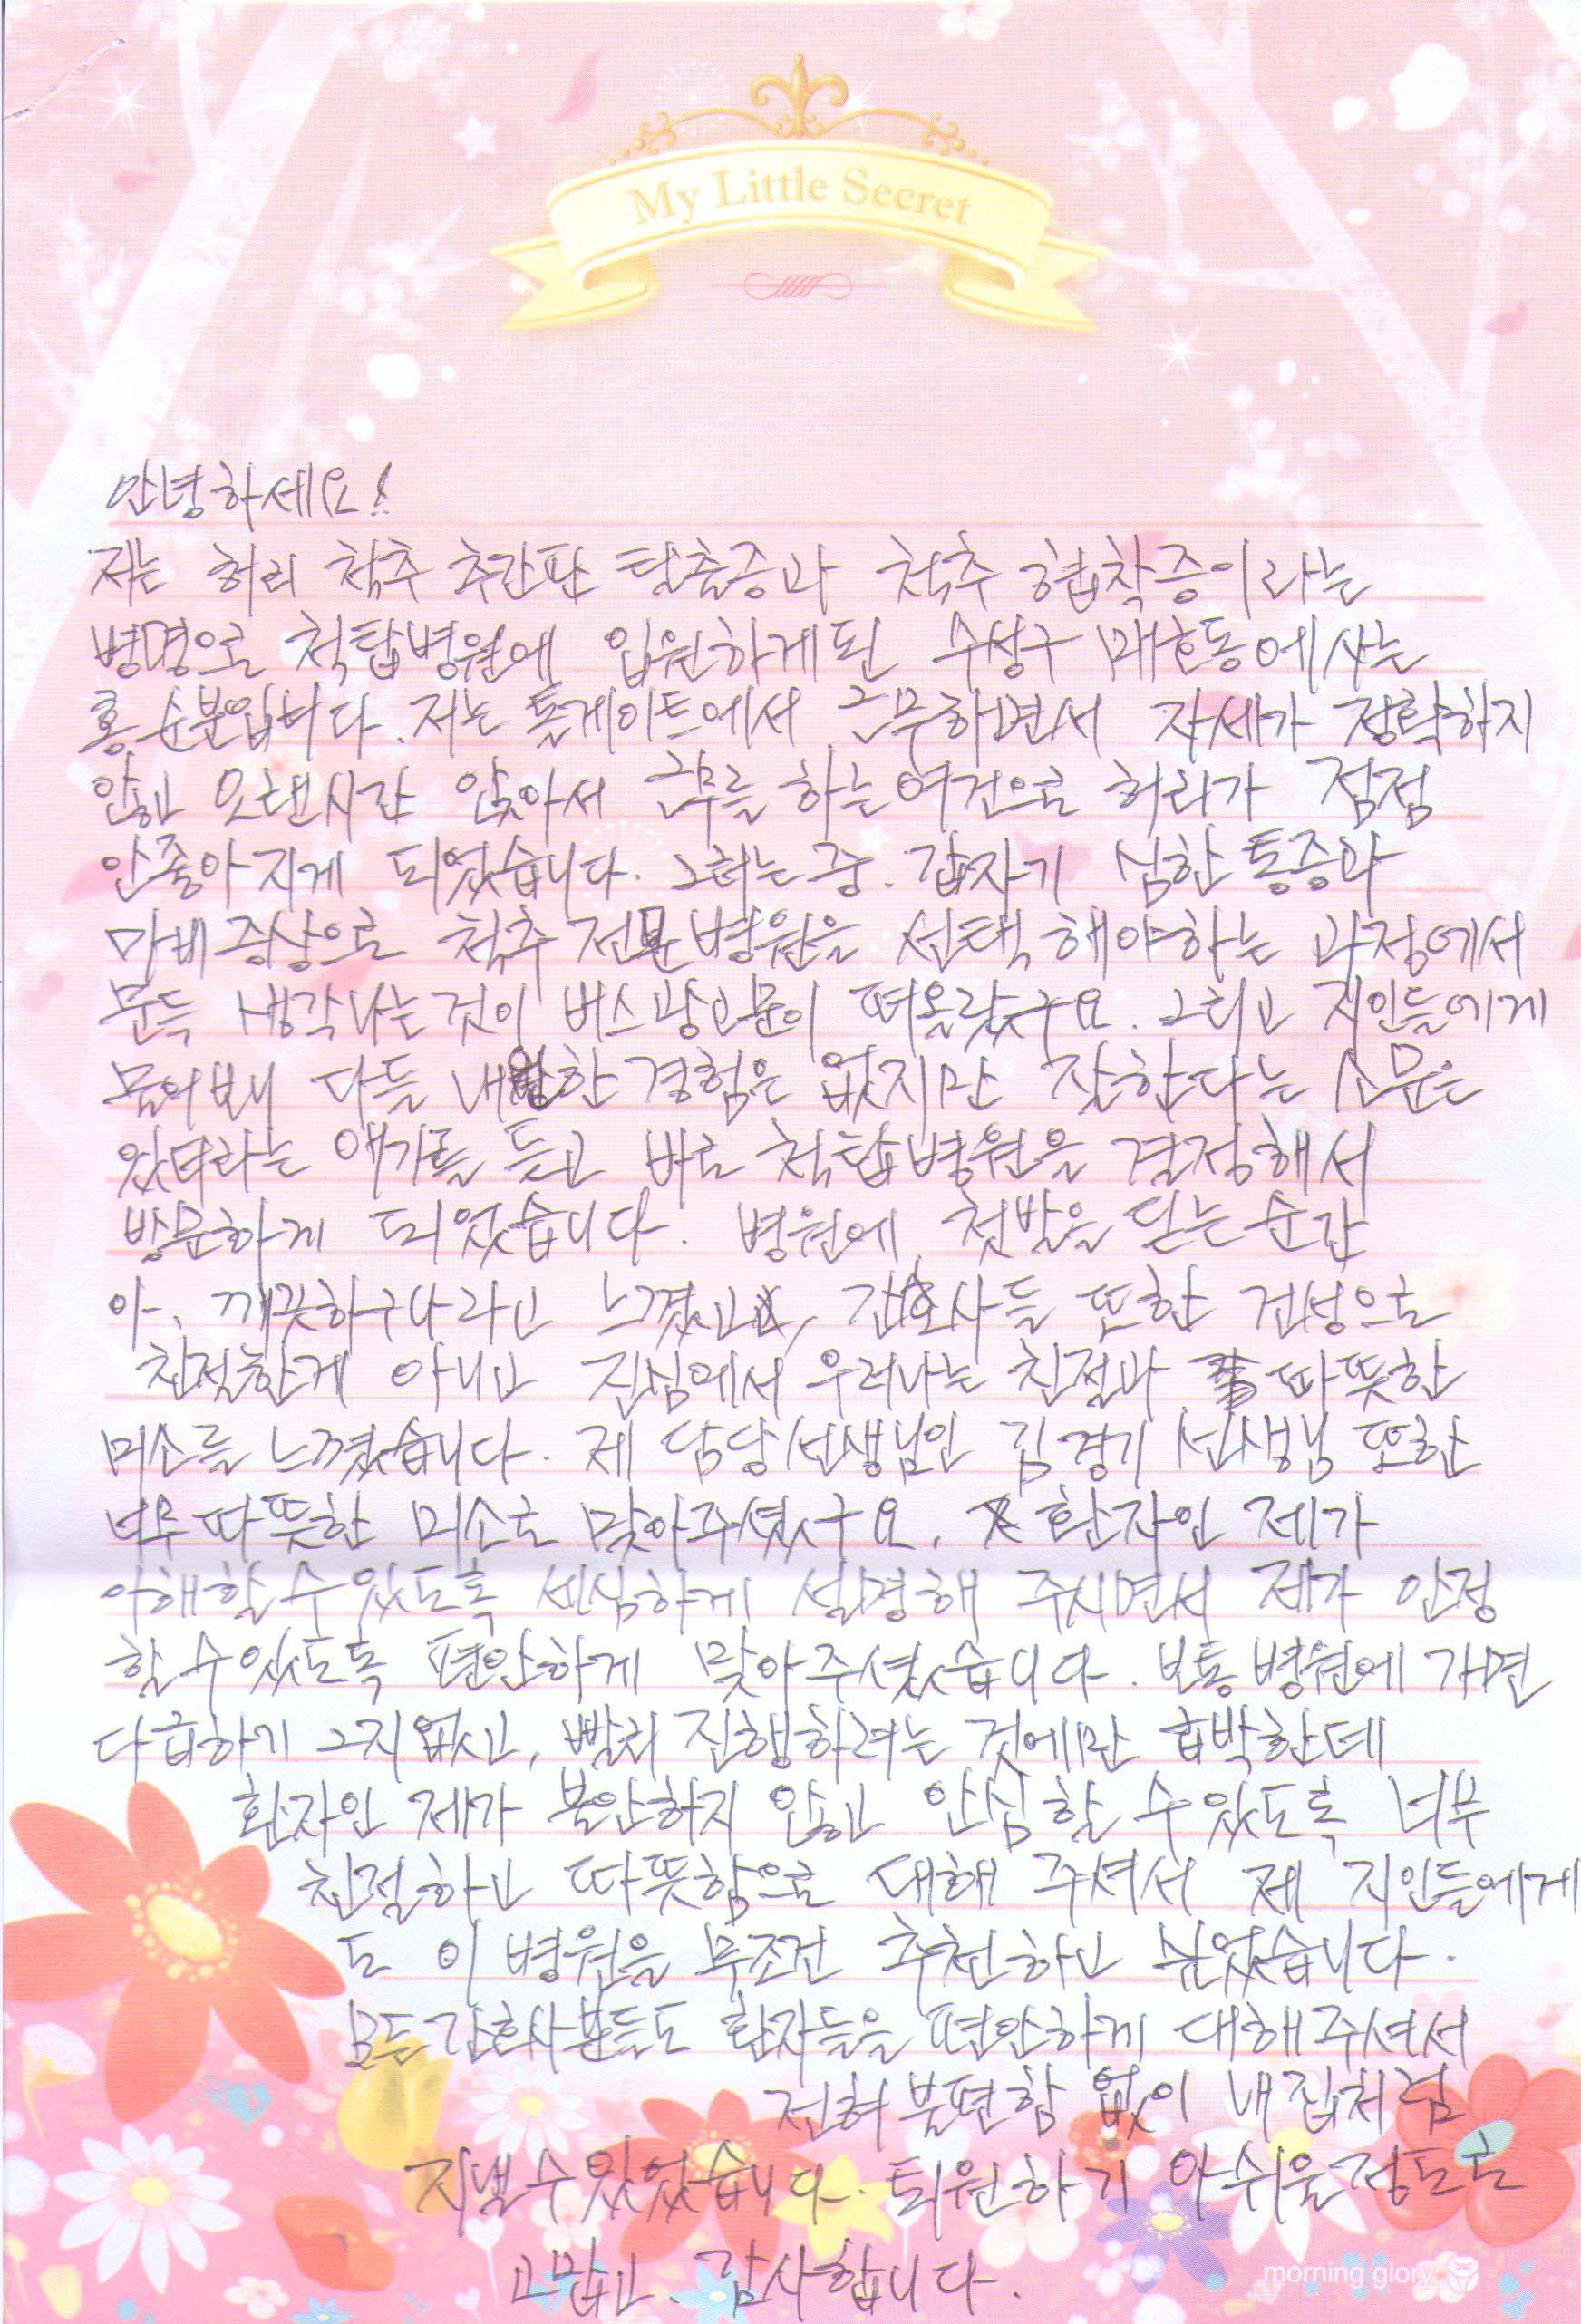 My Little Secret
안녕하세요!
저는 허리 척추 추간판 탈출증과 척추 협착증이라는
병명으로 척탑병원에 입원하게된 수성구 매호동에사는
홍순분입니다. 저는 톨게이트에서 근무하면서 자세가 정확하지
않고 오랜시간 앉아서 근무를 하는여건으로 허리가 점점
안좋아지게 되었습니다. 그러는중. 갑자기 심한통증과
마비증상으로 척추전문병원을 선택해야하는 과정에서
문득 생각나는것이 버스광고문이 떠올랐구요. 그리고 지인들에게
물어보니 다들 내원한경험은 없지만 잘한다는 소문은
있더라는 얘기를 듣고 바로 척탑병원을 결정해서
방문하게 되었습니다. 병원에 첫발을 딛는순간
아. 깨끗하구나라고 느꼈고, 간호사들 또한 건성으로
친절한게 아니고 진심에서 우러나는 친절과 따뜻한
미소를 느꼈습니다. 제 담당선생님인 김경기 선생님 또한
너무따뜻한 미소로 맞아주셨구요. 환자인 제가
이해할수있도록 세심하게 설명해 주시면서 제가 안정
할수있도록 편안하게 맞아주셨습니다. 보통병원에가면
다급하기 그지없고, 빨리 진행하려는 것에만 급박한데
환자인 제가 불안하지 않고 안심할 수있도록 너무
친절하고 따뜻함으로 대해 주셔서 제 지인들에게
도 이병원을 무조건 추천하고 싶었습니다.
모든간호사분들도 환자들을 편안하게 대해주셔서
전혀불편함 없이 내집처럼
지낼수있었습니다. 퇴원하기 아쉬울정도로
고맙고. 감사합니다.
morning glory